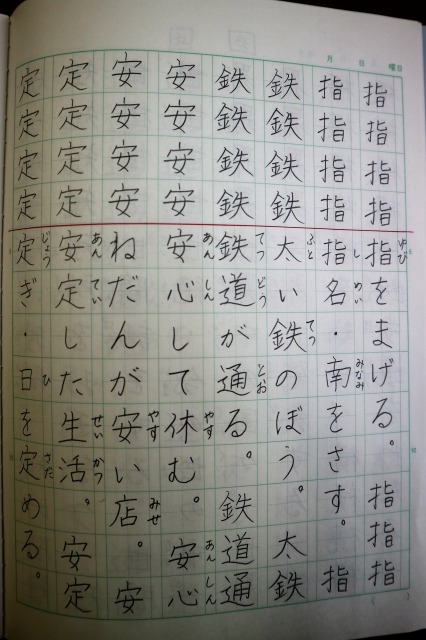 月 日 曜日
指指指指指をまげる。指指指
ゆび
指指指指指名・南をさす。指
し めい みなみ
鉄鉄鉄鉄太い鉄のぼう。太鉄
ふと てつ
鉄鉄鉄鉄鉄道が通る。鉄道通
てつ どう とお
安安安安安心して休む。安心
あん しん やす あん しん
安安安安ねだんが安い店。安
やす みせ
定定定定安定した生活。安定
あん てい せい かつ
定定定定定ぎ・日を定める。
じょう ひ さだ